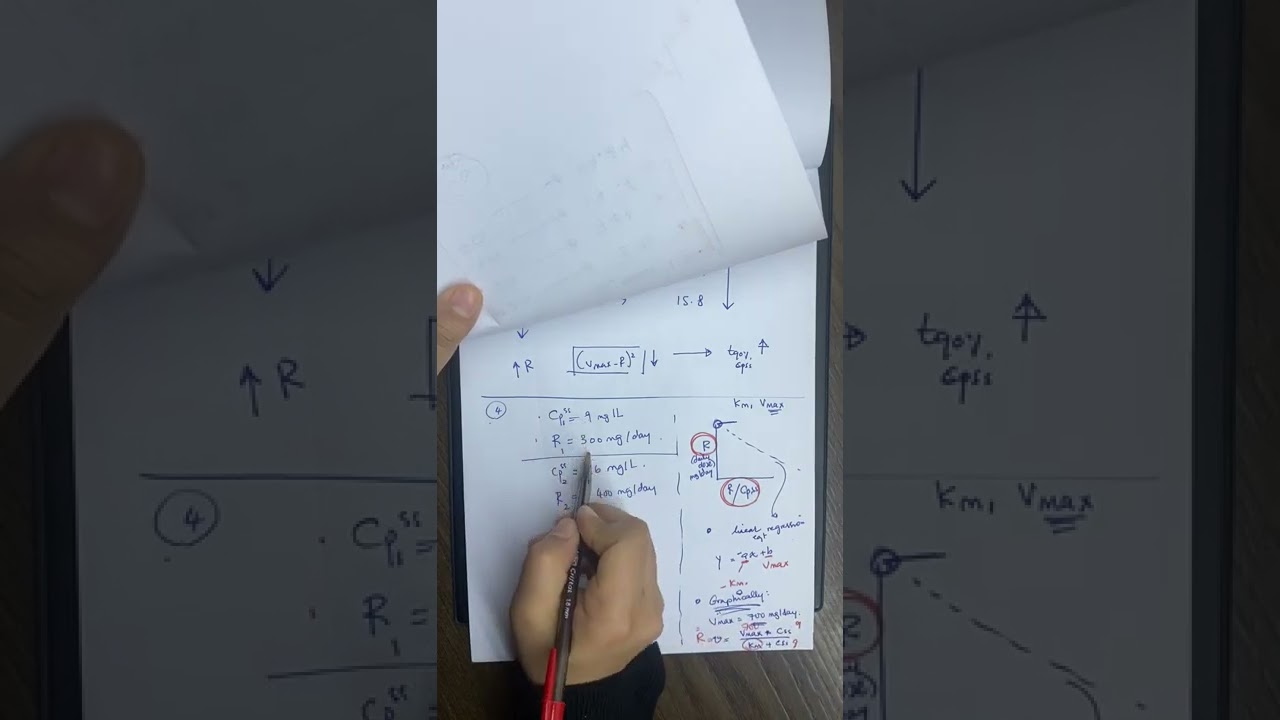 15.8
↑ R |(Vmax-R)² | ↓ → t90% ↑
Cpss
4
Cp1ss = 9 mg/L
R1 = 300 mg/day.
Cp2ss = 6 mg/L.
R2 = 400 mg/day
Km, Vmax
R
(daily
dose)
mg/day
R/Cpss
• linear regression
eqt
Y = -ax + b
-Km. Vmax
• Graphically:
Vmax = 700 mg/day.
R = v = Vmax * Css
Km + Css